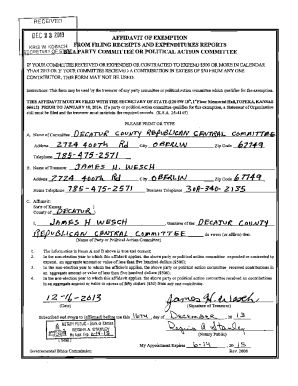 RECEIVED
DEC 23 2013
KRIS W. KOBACH
SECRETARY OF STATE
AFFIDAVIT OF EXEMPTION
FROM FILING RECEIPTS AND EXPENDITURES REPORTS
BY A PARTY COMMITTEE OR POLITICAL ACTION COMMITTEE
IF YOUR COMMITTEE RECEIVED OR EXPENDED OR CONTRACTED TO EXPEND $500 OR MORE IN CALENDAR
YEAR 2013 OR IF YOUR COMMITTEE RECEIVED A CONTRIBUTION IN EXCESS OF $50 FROM ANY ONE
CONTRIBUTOR, THIS FORM MAY NOT BE USED.
Instructions: This form may be used by the treasurer of any party committee or political action committee which qualifies for the exemption.
THIS AFFIDAVIT MUST BE FILED WITH THE SECRETARY OF STATE
PRIOR TO JANUARY 10, 2014. If a party or political action committee qualifies for this exemption, a Statement of Organization
must be filed and the treasurer must maintain the required records.
PLEASE PRINT OR TYPE
A. Name of Committee DECATUR COUNTY REPUBLICAN CENTRAL COMMITTEE
Address 2724 400th Rd City OBERLIN Zip Code 67749
Telephone 785-475-2571
B. Name of Treasurer JAMES H. WESCH
Address 2724 400th Rd City OBERLIN Zip Code 67749
Home Telephone 785-475-2571 Business Telephone 308-340-2135
C. Affidavit:
State of Kansas
County of DECATUR
JAMES H WESCH , treasurer of the DECATUR COUNTY
REPUBLICAN CENTRAL COMMITTEE do swear (or affirm) that:
(Name of Party or Political Action Committee)
1. The information in Items A and B above is true and correct.
2. In the non-election year to which this affidavit applies, the above party or political action committee expended or contracted to
expend, an aggregate amount or value of less than five hundred dollars ($500).
3. In the non-election year to which this affidavit applies, the above party or political action committee received contributions in
an aggregate amount or value of less than five hundred dollars ($500).
4. In the non-election year to which this affidavit applies, the above party or political action committee received no contributions
in an aggregate amount or value in excess of fifty dollars ($50) from any one contributor.
12-16-2013 James H. Wesch
(Date) (Signature of Treasurer)
Subscribed and sworn to (affirmed) before me this 16th day of December , 20 13
NOTARY PUBLIC - State of Kansas
(Notary Public)
(SEAL)
My Appointment Expires 6-14 , 20 15
Governmental Ethics Commission Rev. 2008